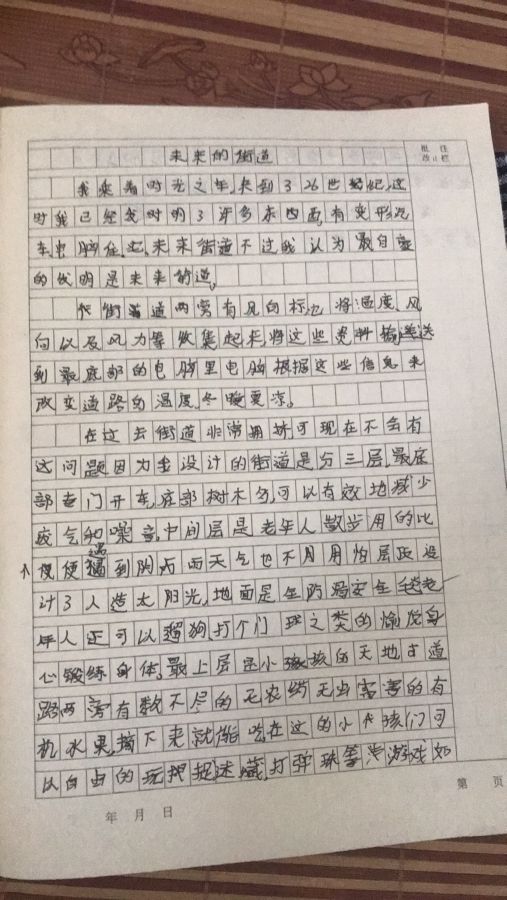 未来的街道
批 注
改订栏
我乘着时光之车,来到326世纪,这
时我已经发明了许多东西,有变形汽
车,电脑住宅,未来街道不过我认为最自豪
的伐明是未来街道。
街道两旁有的标,将温度、风
向以及风力等收集起来,将这些资料输送
到最底部的电脑里电脑根据这些信息来
改变道路的温度,冬暖夏凉。
在过去街道非常拥挤可现在不会有
这问题因为我设计的街道是分三层,最底
部专门开车,底部树木多,可以有效地减少
废气和噪音,中间层是老年人散步用的比
便遇到阴雨天气也不用怕层设
计了人造太阳光,地面是全防滑安全老
年人还可以遛狗打个门球之类的愉悦身
心锻练身体,最上层是小孩的天地,道
路两旁有数不尽的无农药无害的有
机水果,摘下来就能吃在这的小孩们可
以自由的玩捉迷藏,打弹珠等游戏如
第 页
年 月 日